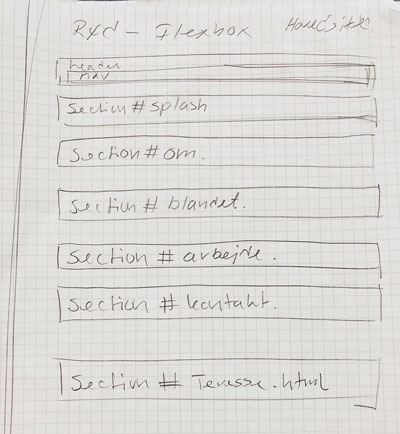 Rød - Flexbox Hovedside.
header
nav
Section # splash
Section # om.
Section # blandet.
Section # arbejde.
Section # kontakt.
Section # Terasse.html